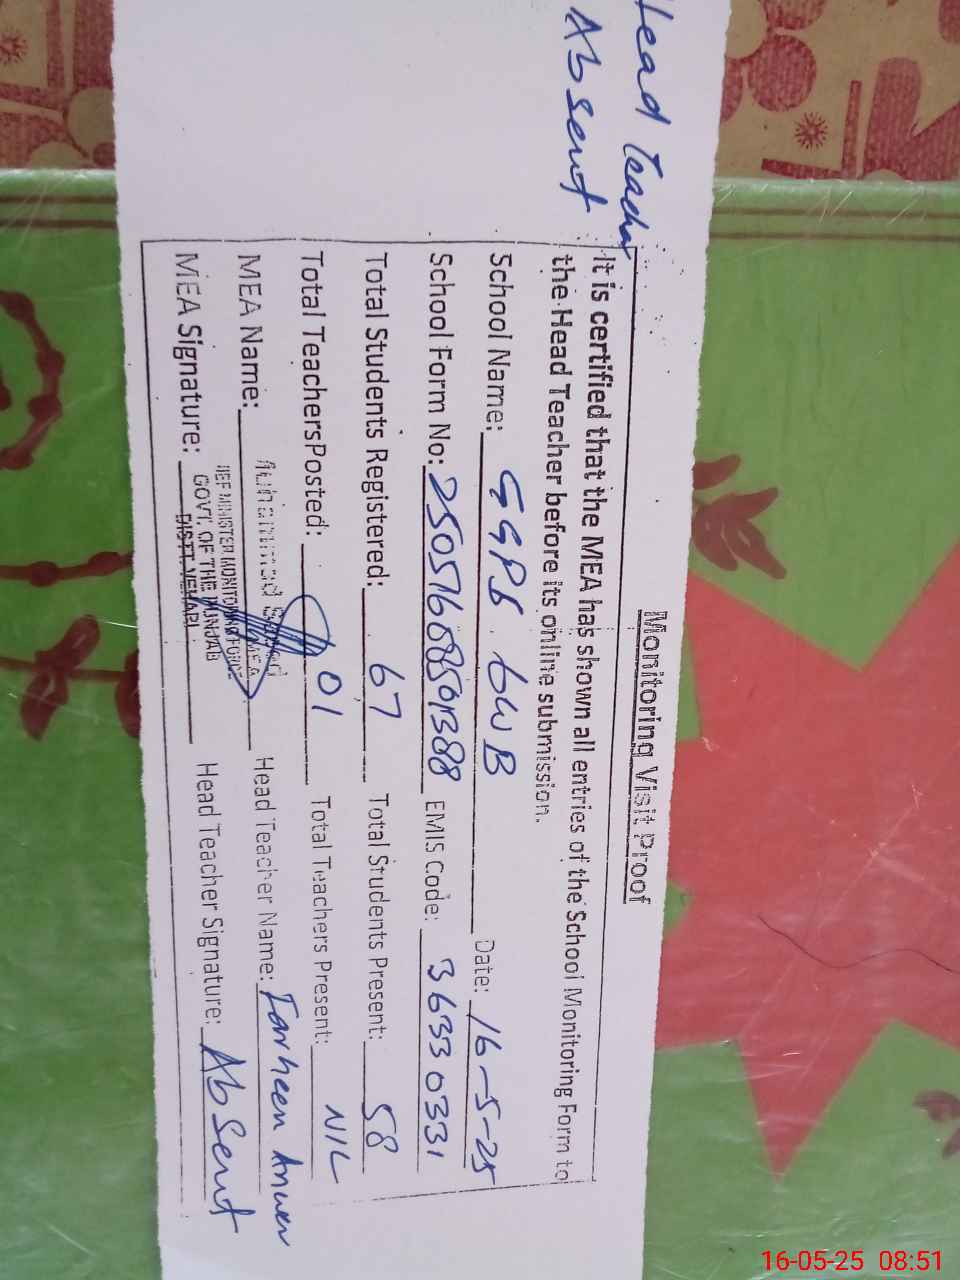 Head Teacher
Absent
Monitoring Visit Proof
It is certified that the MEA has shown all entries of the School Monitoring Form to
the Head Teacher before its online submission.
School Name: GGPS 6WB Date: 16-5-25
School Form No: EMIS Code: 36330331
Total Students Registered: 67 Total Students Present: 58
Total TeachersPosted: 01 Total Teachers Present: NIL
MEA Name: Muhammad MEA Head Teacher Name: Farheen Anwer
MINISTER MONITORING FORCE
MEA Signature: GOVT. OF THE PUNJAB Head Teacher Signature: Absent
DISTT. VEHARI
16-05-25 08:51